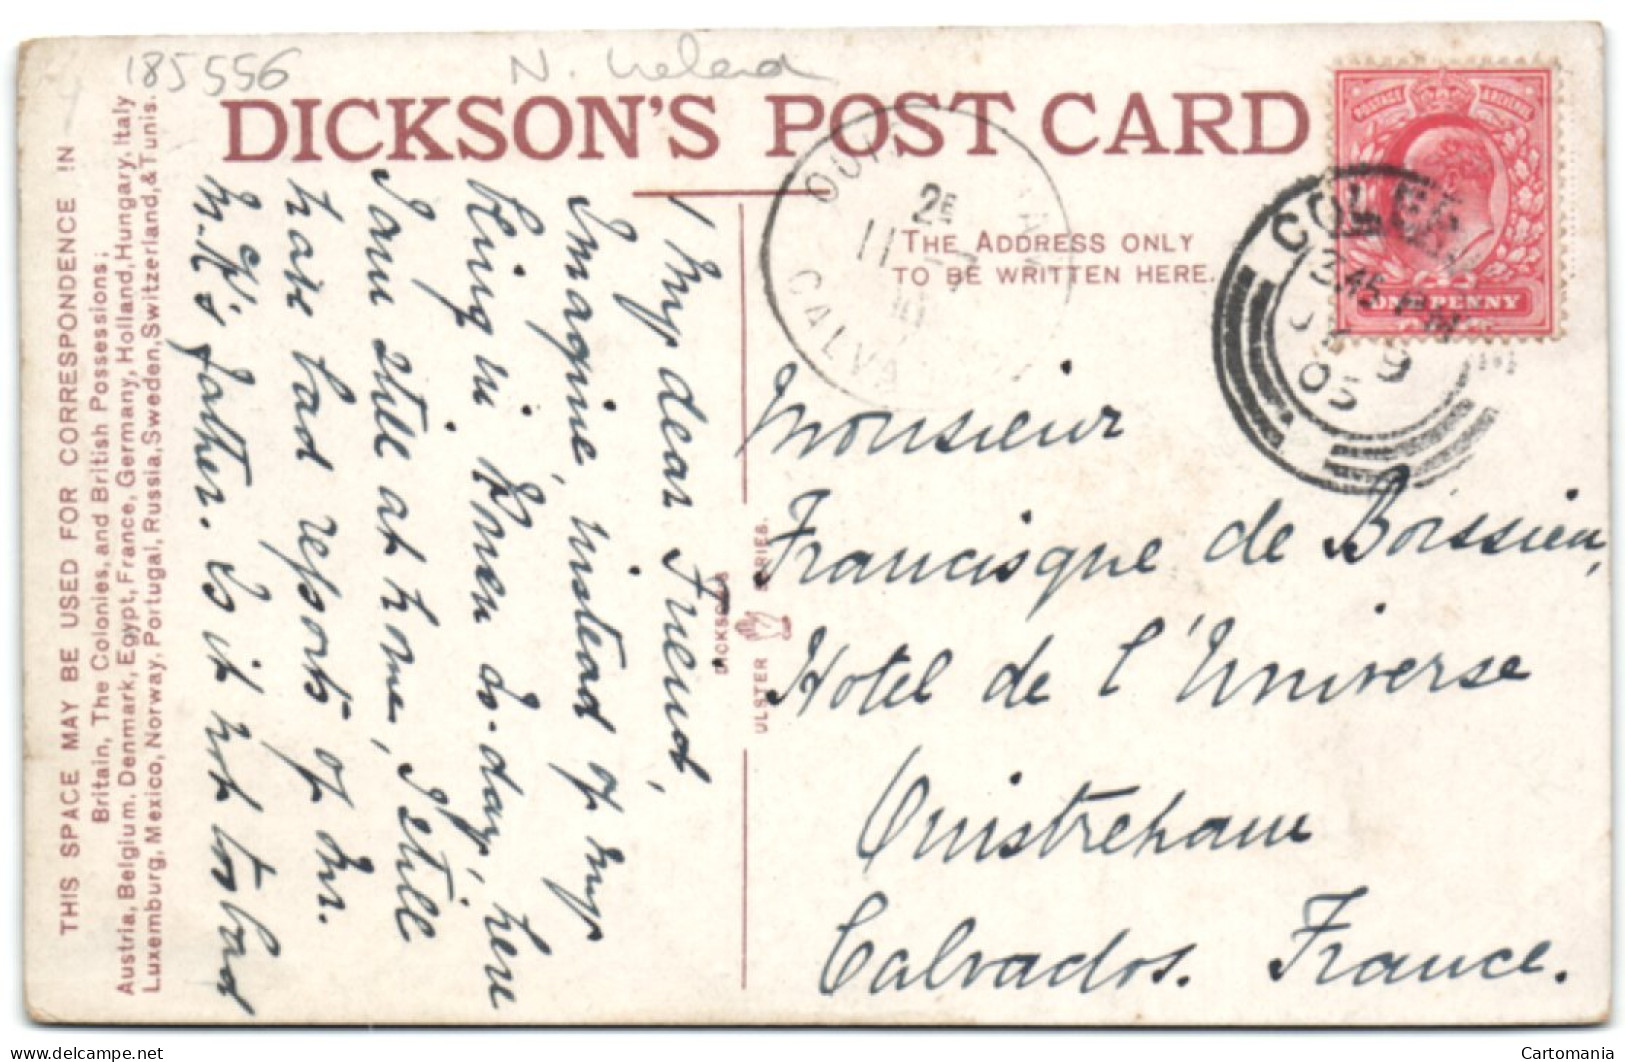 185556
N. Ireland
DICKSON'S POST CARD
THIS SPACE MAY BE USED FOR CORRESPONDENCE IN
Britain, The Colonies, and British Possessions;
Austria, Belgium, Denmark, Egypt, France, Germany, Holland, Hungary, Italy
Luxemburg, Mexico, Norway, Portugal, Russia, Sweden, Switzerland, & Tunis.
THE ADDRESS ONLY
TO BE WRITTEN HERE.
POSTAGE
ONE PENNY
COLE
3.45 PM
9
05
2E
11
CALVA
My dear Friend,
Imagine, instead of my
being in Rouen to-day, here
I am still at home, I still
have bad reports of Mr.
father. Is it not too bad
DICKSON'S
ULSTER SERIES.
Monsieur
Francisque de Boissieu,
Hotel de l'Universe
Ouistreham
Calvados. France.
Cartomania